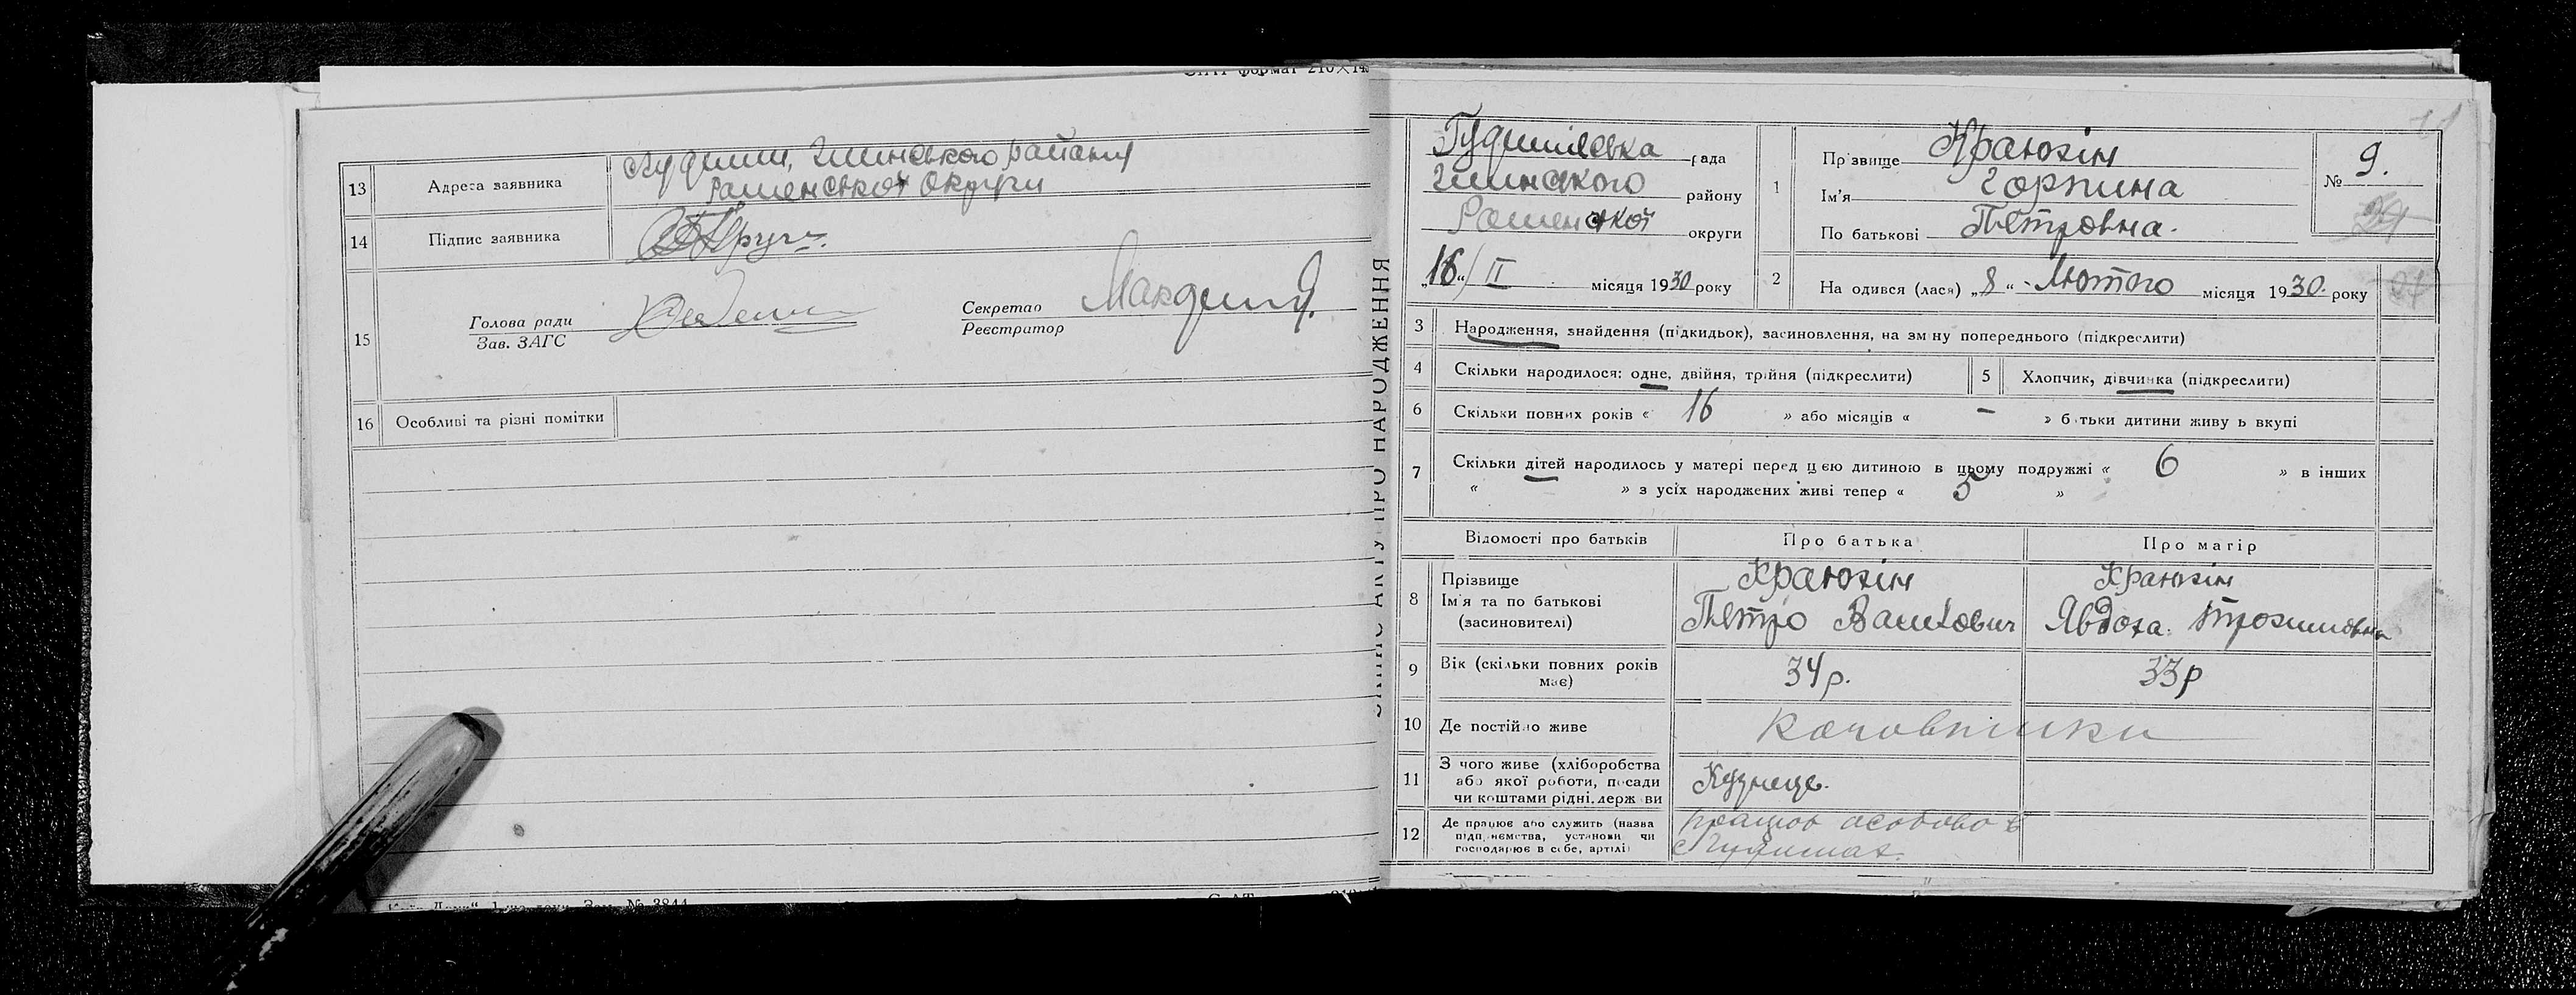 СААТ формат 210×14
13 Адреса заявника Гудими, Глинського району
Роменської округи
14 Підпис заявника
15 Голова ради
Зав. ЗАГС
Секретар
Реєстратор
16 Особливі та різні помітки
Зам. № 3844
ЗАПИС АКТУ ПРО НАРОДЖЕННЯ
Гудимівська рада
Глинського району
Роменської округи
„16“/ II місяця 1930 року
1 Прізвище Краюхін
Ім'я Горпина
По батькові Петровна.
№ 9.
24
2 Народився (лася) „8“ Лютого місяця 1930 року
3 Народження, знайдення (підкидьок), засиновлення, на зміну попереднього (підкреслити)
4 Скільки народилося: одне, двійня, трійня (підкреслити)
5 Хлопчик, дівчинка (підкреслити)
6 Скільки повних років « 16 » або місяців « – » батьки дитини живуть вкупі
7 Скільки дітей народилось у матері перед цією дитиною в цьому подружжі « 6 » в інших
« » з усіх народжених живі тепер « 5 »
Відомості про батьків Про батька Про матір
8 Прізвище Краюхін Краюхін
Ім'я та по батькові Петро Васильович Явдоха Трохимовна
(засиновителі)
9 Вік (скільки повних років має) 34 р. 33 р
10 Де постійно живе
11 З чого живе (хліборобства
або якої роботи, посади
чи коштами рідні, держави Кузнець
12 Де працює або служить (назва
підприємства, установи чи
господарює в себе, артілі)